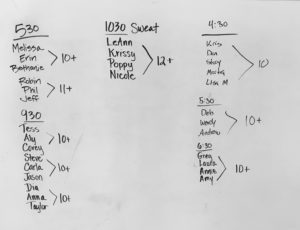 530
Melissa
Erin
Bethanie
10+
Robin
Phil
Jeff
11+
930
Tess
Aly
Corey
10+
Steve
Carla
Jason
10+
Dia
Anna
Taylor
10+
1030 Sweat
LeAnn
Krissy
Poppy
Nicole
12+
4:30
Kris
Dan
Stacy
Martha
Lisa M
10
5:30
Deb
Wendy
Andrew
10+
6:30
Greg
Laura
Annie
Amy
10+